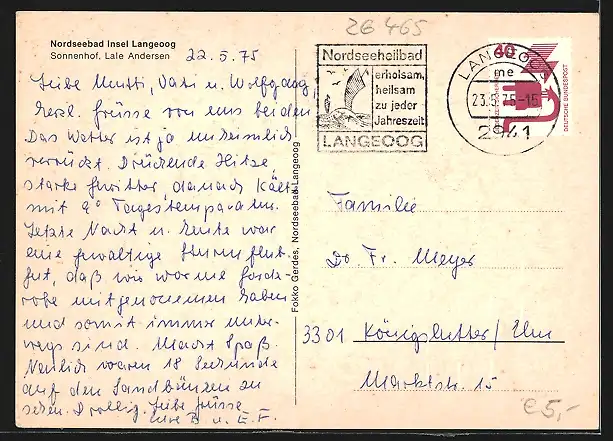 ZG 465
Nordseebad Insel Langeoog
Sonnenhof, Lale Andersen
22.5.75
Liebe Mutti, Vati u. Wolfgang,
herzl. Grüsse von uns beiden
Das Wetter ist ja unheimlich
verrückt. Drückende Hitze
starke Gewitter danach Kälte
mit 9° Tagestemperatur.
Letzte Nacht u. heute war
eine gewaltige Sturmflut
gut, daß wir warme Garde-
robe mitgenommen haben
und somit immer unter-
wegs sind. Macht Spaß.
Neulich waren 18 Seehunde
auf den Sandbänken zu
sehen. Drollig. Liebe Grüsse
Eure B u. E. F.
Fokko Gerdes, Nordseebad Langeoog
Nordseeheilbad
erholsam,
heilsam
zu jeder
Jahreszeit
LANGEOOG
LANGEOOG
me
23.5.75-15
2941
40
DEUTSCHE BUNDESPOST
Familie
Fr. Meyer
3301 Königslutter/Elm
Marktstr. 15
€ 5,-